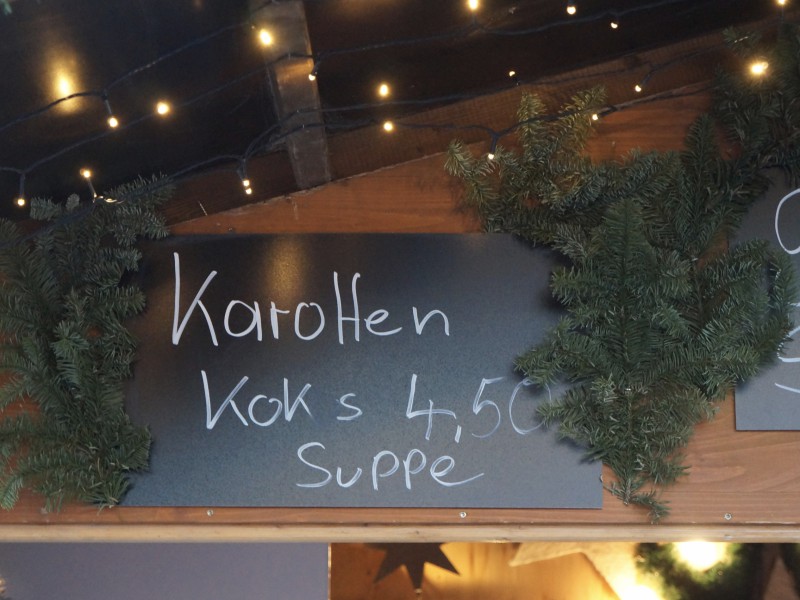 Karotten
Koks 4,50
Suppe